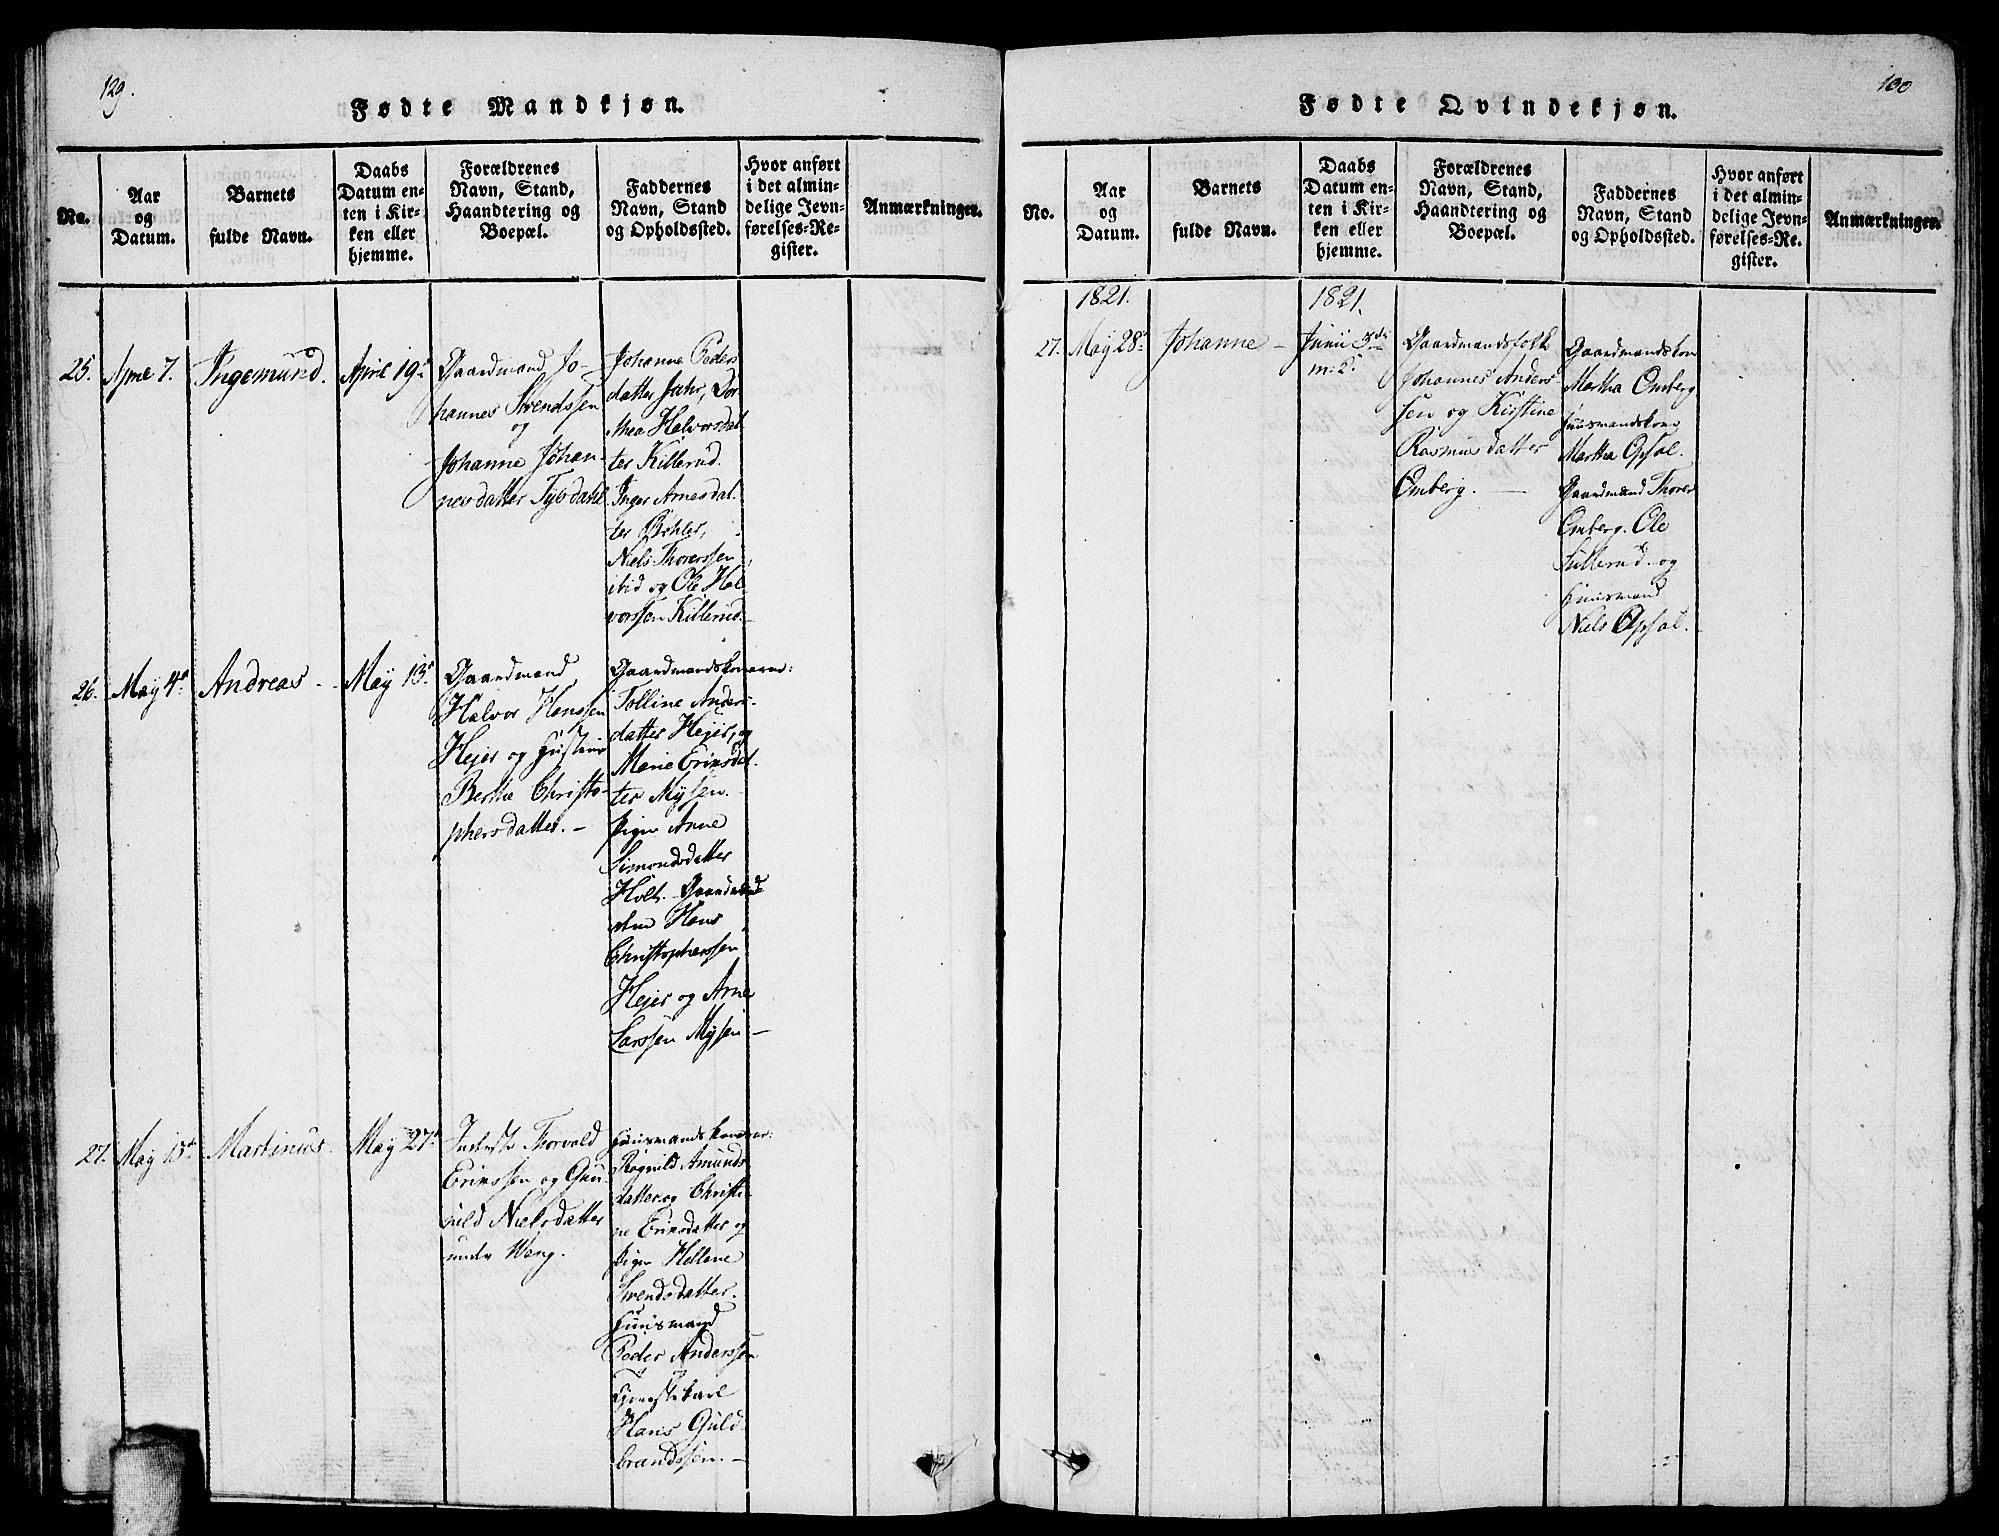 129.
Fødte Mandkjøn.
No.
Aar
og
Datum.
Barnets
fulde Navn.
Daabs
Datum en-
ten i Kir-
ken eller
hjemme.
Forældrenes
Navn, Stand,
Haandtering og
Boepæl.
Faddernes
Navn, Stand
og Opholdssted.
Hvor anført
i det almin-
delige Jevn-
førelses-Re-
gister.
Anmærkninger.
25.
April 7.
Ingemund.
April 19de
Gaardmand Jo-
hannes Svendssen
og
Johanne Johan-
nesdatter
Johanne Peders
datter Jahr, Dor
thea Halvorsdat
ter Killerud.
Inger Arnesdat
ter
Niels Thorerssen
ibid og Ole Hal
vorssen Killerud.
26.
May 4de
Andreas
May 13de
Gaardmand
Halvor Hanssen
Hejer og Hustrue
Berthe Christo-
phersdatter.
Gaardmandskonerne:
Tolline Anders-
datter Hejer, og
Marie Eriksdat
ter Mysen.
Pigen Anne
Simonsdatter
Holt. Gaardmænd
ene Hans
Christopherssen
Hejer og Arne
Larssen Mysen
27.
May 15de
Martinus.
May 27de
Inderste Thorvald
Erikssen og Gun
nild Nielsdatter
under Weng.
Huusmandskonerne:
Rognild Amunds
datter og Christi-
ne Eriksdatter og
Pigen Hellene
Svendsdatter.
Huusmand
Peder Anderssen
Tjenestekarl
Hans Guld
brandssen.
130
Fødte Qvindekjøn.
No.
Aar
og
Datum.
Barnets
fulde Navn.
Daabs
Datum en-
ten i Kir-
ken eller
hjemme.
Forældrenes
Navn, Stand,
Haandtering og
Boepæl.
Faddernes
Navn, Stand
og Opholdssted.
Hvor anført
i det almin-
delige Jevn-
førelses-Re-
gister.
Anmærkninger.
1821.
1821.
27.
May 28de
Johanne
Junii 3die
Gaardmandsfolk
Johannes Anders
sen og Kirstine
Rasmusdatter
Omberg.
Gaardmandskone
Martha Omberg
Huusmandskone
Martha Opsal.
Gaardmand Thorer
Omberg. Ole
og
Huusmand
Niels Opsal.